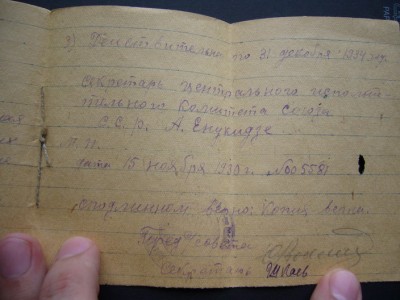 3) Действительна по 31 декабря 1934 года
Секретарь центрального исполни-
тельного Комитета Союза
С.С.Р. А. Енукидзе
М. П.
дата 15 ноября 1930 г. №005581
с подлинном верно: Копия верна.
Пред с/совета
Секретарь